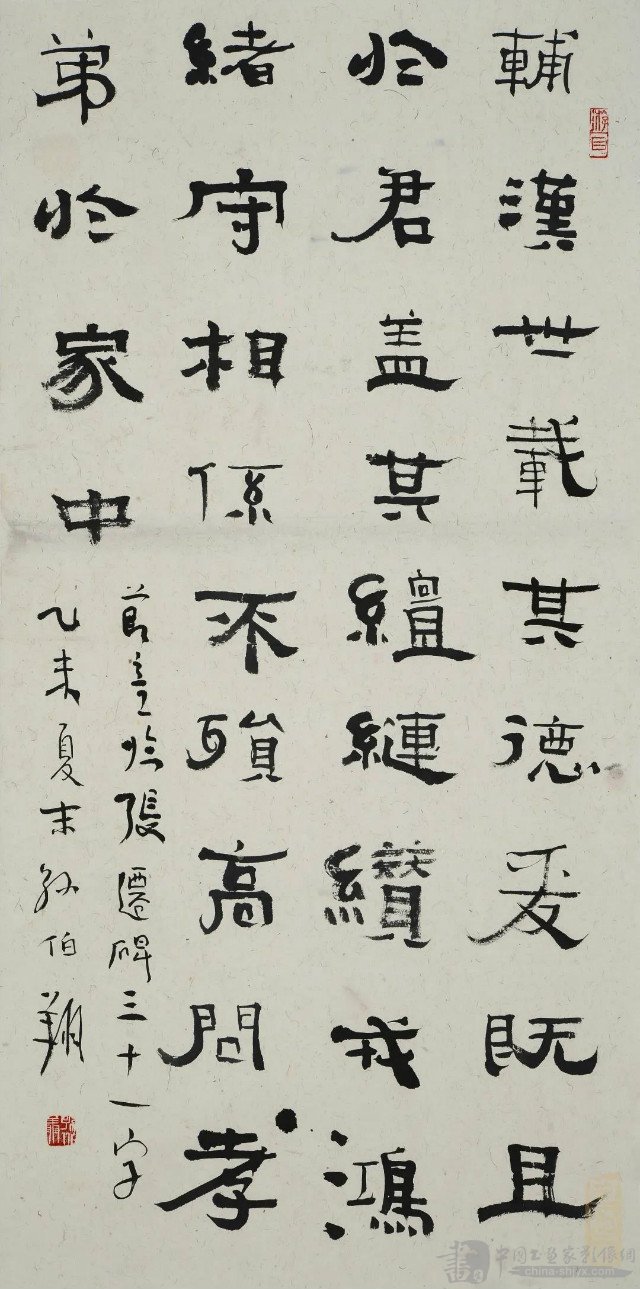 輔漢世載其德爰既且
於君盖其繵縺纘戎鴻
緒守相係不殞高問孝
弟於家中
節意臨張遷碑三十一字
乙未夏末孫伯翔
中國書畫家影像網
china-shryx.com